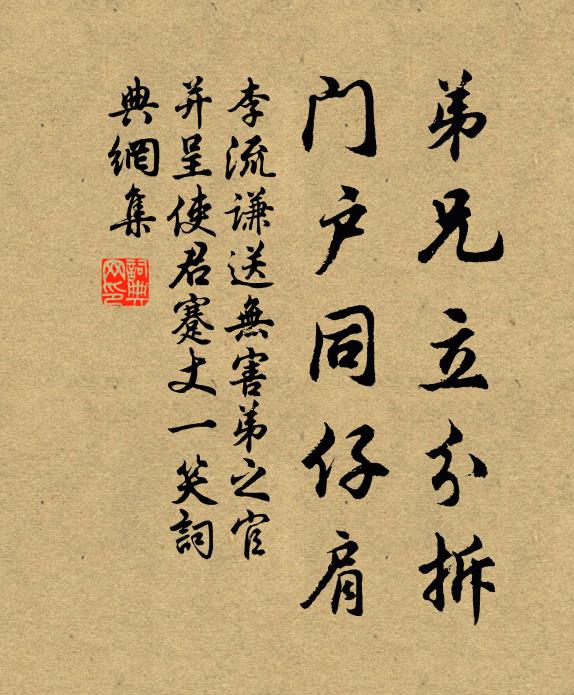 弟兄立分拆
門户同仔肩
李流謙送無害弟之官
并呈使君蹇丈一笑詞
典網集
詞典网印